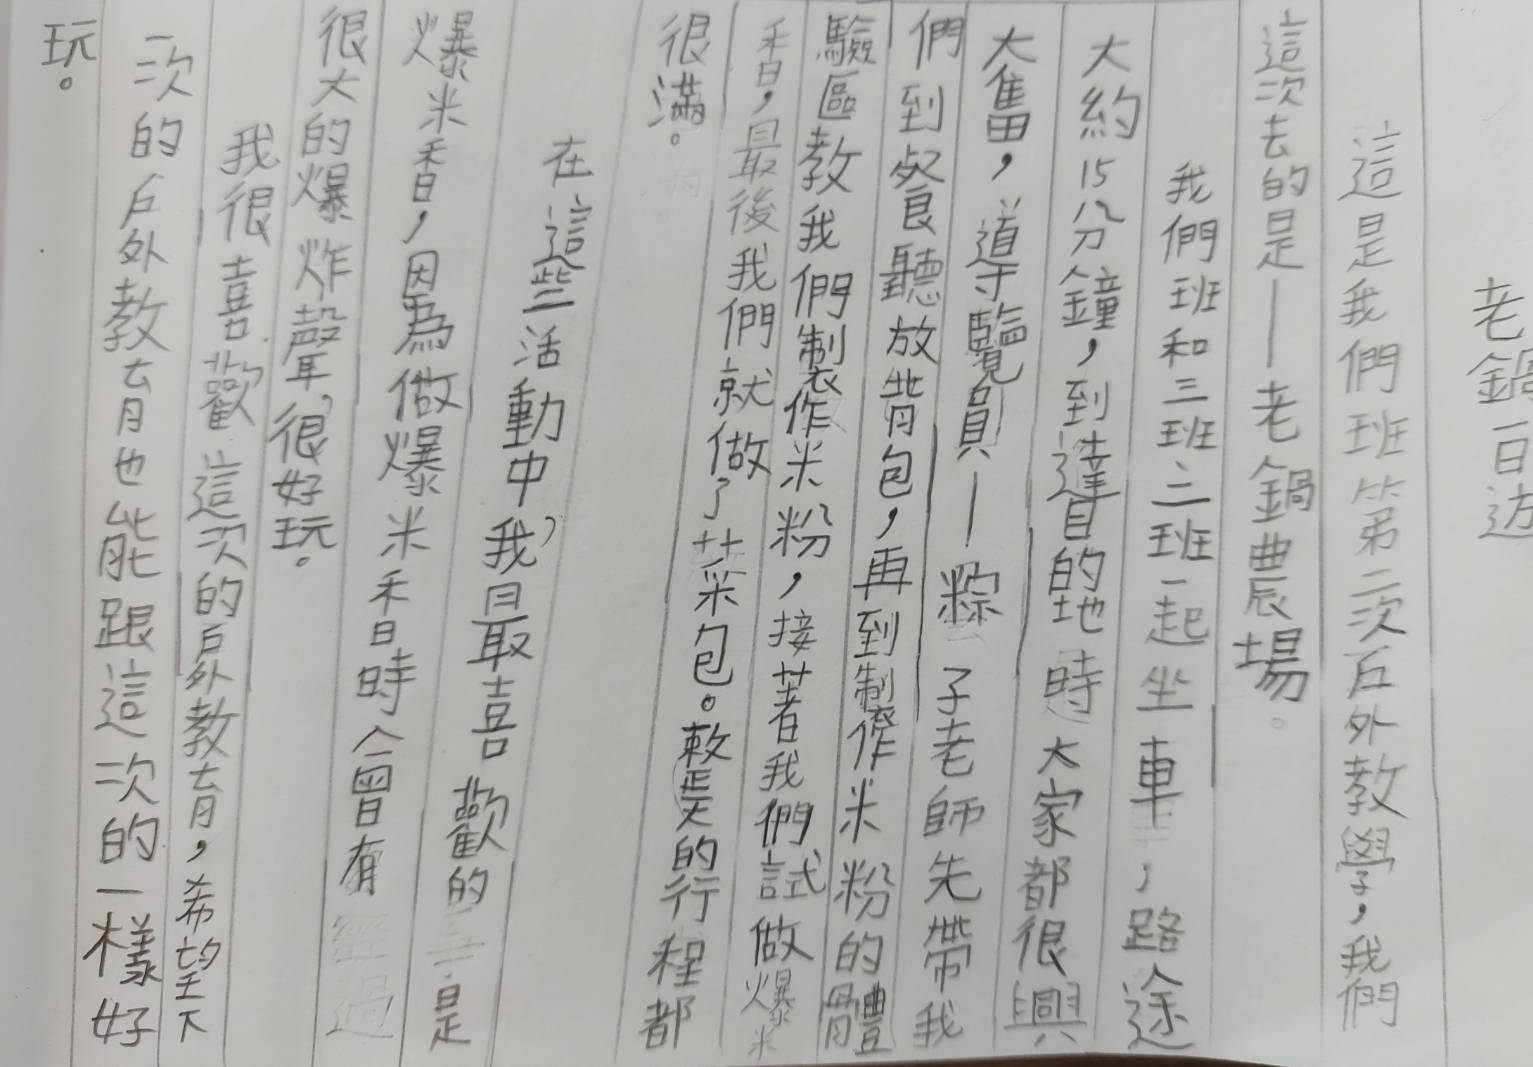 老鍋一日遊
這是我們班第二次戶外教學，我們
這次去的是——老鍋農場。
我們班和三班二班一起坐車，路途
大約15分鐘，到達目的地時大家都很興
奮，導覽員——粽子老師先帶我
們到餐廳放背包，再到製作米粉的體
驗區教我們製作米粉，接著我們試做爆米
香，最後我們就做了菜包。整天的行程都
很滿。
在這些活動中，我最喜歡的是
爆米香，因為做爆米香時會有
很大的爆炸聲，很好玩。
我很喜歡這次的戶外教育，希望下
一次的戶外教育也能跟這次的一樣好
玩。